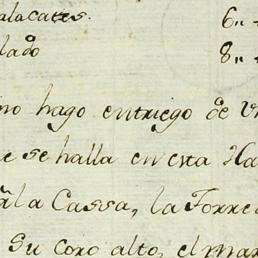 alacates. 6„
lado 8„
no hago entriego de
e se halla en esta Ha
la Cassa, la Torre
Su coro alto, el mar